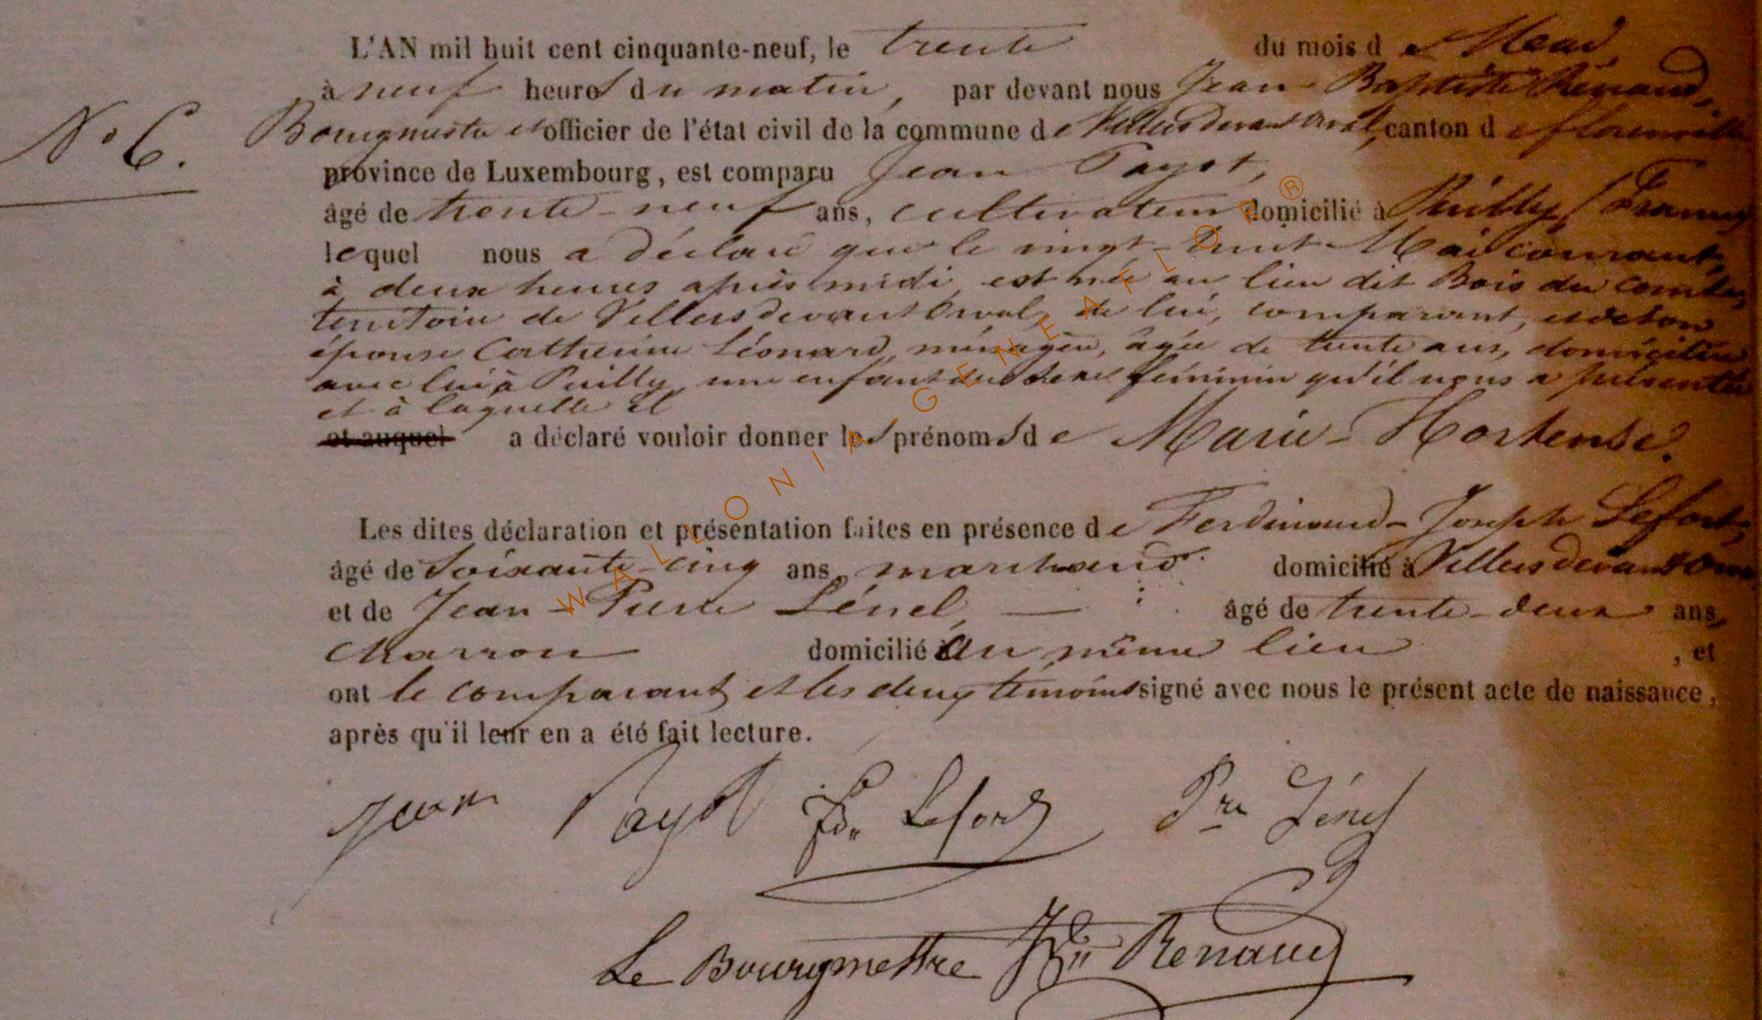 L'AN mil huit cent cinquante-neuf, le trente du mois de Mai,
à neuf heures du matin, par devant nous Jean-Baptiste Renaud,
N° 6. Bourgmestre et officier de l'état civil de la commune de Villers devant Orval, canton de florenville
province de Luxembourg, est comparu Jean Payot,
âgé de trente-neuf ans, cultivateur domicilié à Puilly, (France)
lequel nous a déclaré que le vingt-huit Mai courant,
à deux heures après midi, est née au lieu dit Bois du Comte,
territoire de Villers devant Orval, de lui, comparant, et de son
épouse Catherine Léonard, ménagère, âgée de trente ans, domiciliée
avec lui à Puilly, une enfant du sexe féminin qu'il nous a présentée
et à laquelle il
et auquel a déclaré vouloir donner les prénoms de Marie-Hortense.
Les dites déclaration et présentation faites en présence de Ferdinand-Joseph Lefort,
âgé de soixante-cinq ans, marchand domicilié à Villers devant Orval
et de Jean-Pierre Lénel, — âgé de trente-deux ans,
charron domicilié au même lieu, et
ont le comparant et les deux témoins signé avec nous le présent acte de naissance,
après qu'il leur en a été fait lecture.
Jean Payot Lefort Pre Lénel
Le Bourgmettre Renaud
WALLONIA GENEAFLOR®